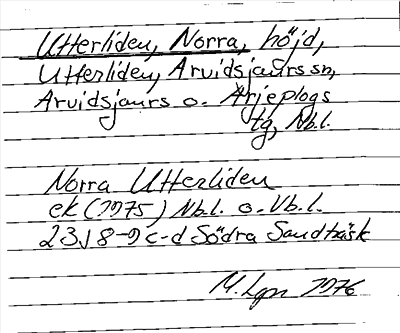 Utterliden, Norra, höjd,
Utterliden, Arvidsjaurs sn,
Arvidsjaurs o. Arjeplogs
tg, Nb.l.
Norra Utterliden
ek (1975) Nb.l. o. Vb.l.
23J 8-9 c-d Södra Sandträsk
M. Lgn 1976